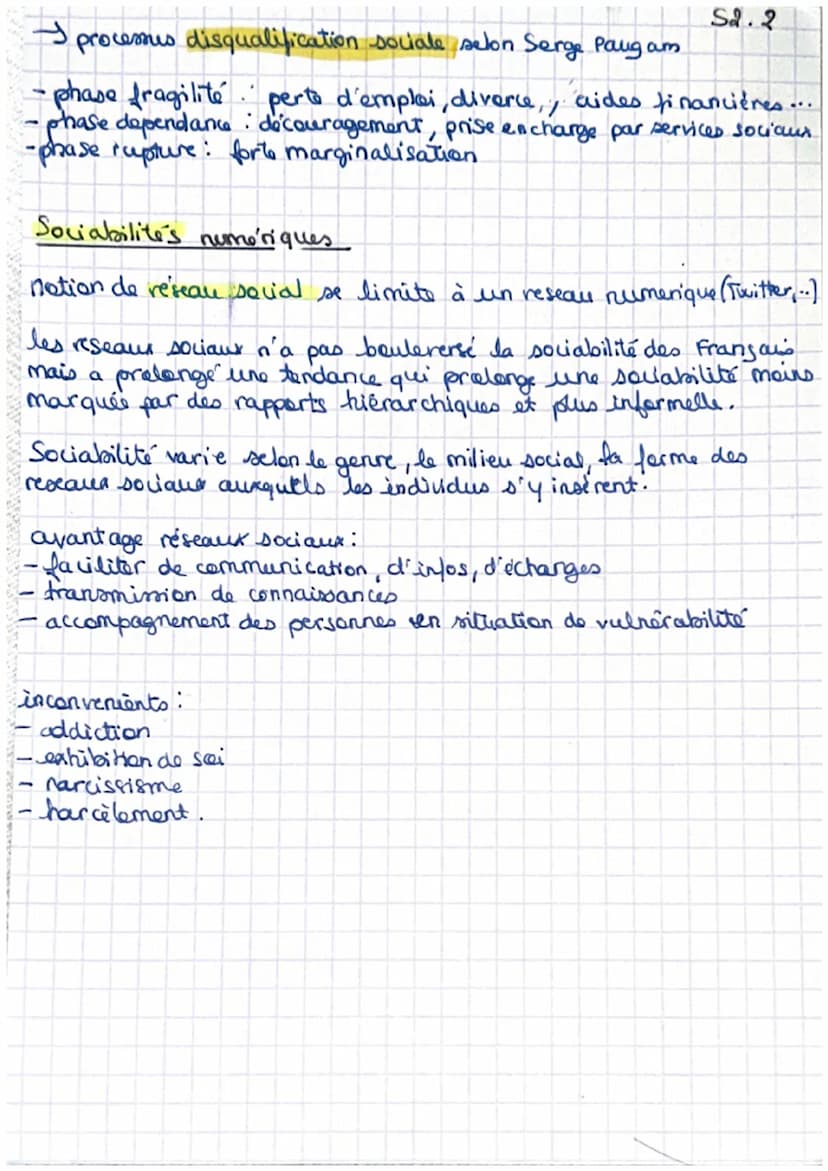 S2.2
→ processus disqualification sociale selon Serge Paugam
- phase fragilité : perte d'emploi, divorce,, aides financières...
- phase dependance : découragement, prise en charge par services sociaux
- phase rupture : forte marginalisation
Sociabilités numériques
notion de réseau social se limite à un reseau numerique (Twitter,..)
les reseaux sociaux n'a pas bouleversé la sociabilité des Français
mais a prolongé une tendance qui prolonge une sociabilité moins
marquée par des rapports hiérarchiques et plus informelle.
Sociabilité varie selon le genre, le milieu social, la forme des
reseaux sociaux auxquels les individus s'y insèrent.
avantage réseaux sociaux :
- faciliter de communication, d'infos, d'échanges
- transmission de connaissances
- accompagnement des personnes en situation de vulnérabilité
inconvenients :
- addiction
- exhibition de soi
- narcissisme
- harcèlement.